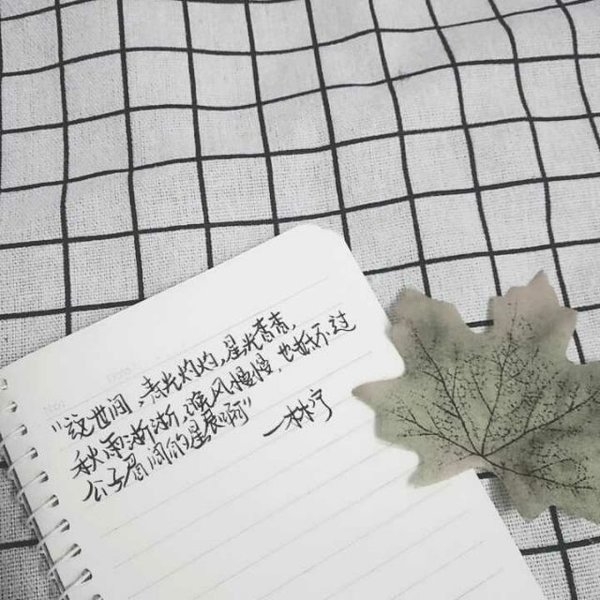 "这世间,春光灼灼,星光杳杳,
秋雨淅淅,晚风慢慢,也抵不过
公子眉间的星辰啊"
一林宁